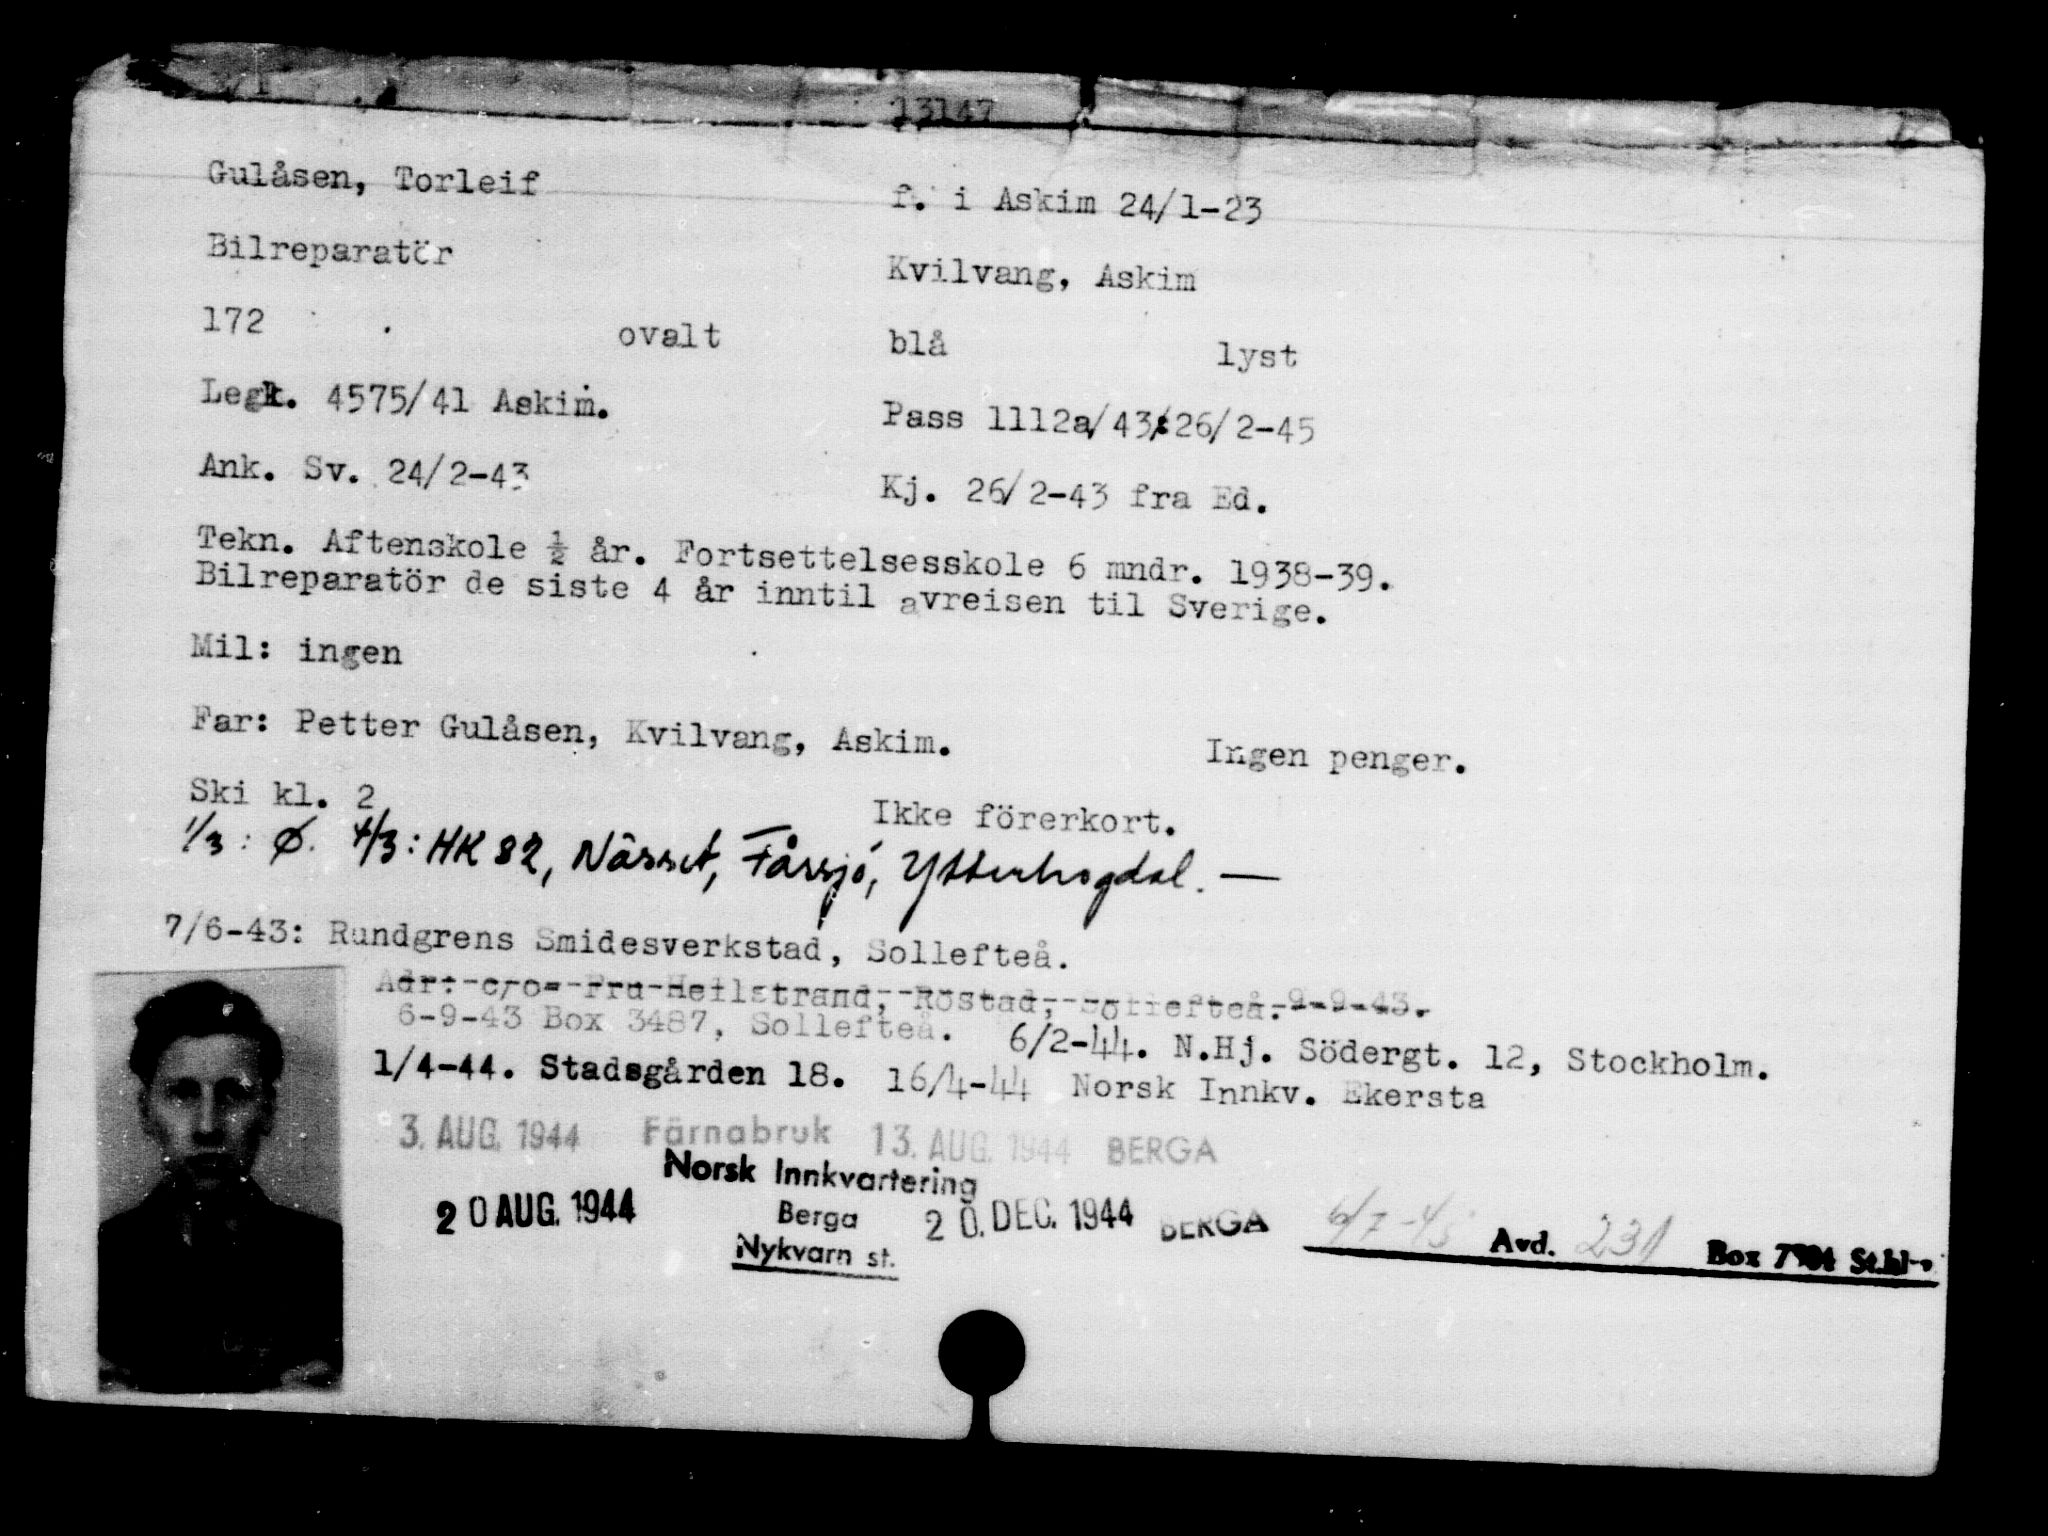 13147
Gulåsen, Torleif f. i Askim 24/1-23
Bilreparatör Kvilvang, Askim
172 ovalt blå lyst
Legk. 4575/41 Askim. Pass 1112a/43:26/2-45
Ank. Sv. 24/2-43 Kj. 26/2-43 fra Ed.
Tekn. Aftenskole ½ år. Fortsettelsesskole 6 mndr. 1938-39.
Bilreparatör de siste 4 år inntil avreisen til Sverige.
Mil: ingen
Far: Petter Gulåsen, Kvilvang, Askim. Ingen penger.
Ski kl. 2 Ikke förerkort.
1/3: Ø. 4/3: HK 82, Nässet, Fårsjö, Ytterhogdal. —
7/6-43: Rundgrens Smidesverkstad, Sollefteå.
Adr: c/o Fru Hellstrand, Röstad, Sollefteå. 9-9-43.
6-9-43 Box 3487, Sollefteå. 6/2-44. N.Hj. Södergt. 12, Stockholm.
1/4-44. Stadsgården 18. 16/4-44 Norsk Innkv. Ekersta
3. AUG. 1944 Färnabruk 13. AUG. 1944 BERGA
20 AUG. 1944 Norsk Innkvartering
Berga
Nykvarn st.
20. DEC. 1944 BERGA 6/7-45 Avd. 231 Box